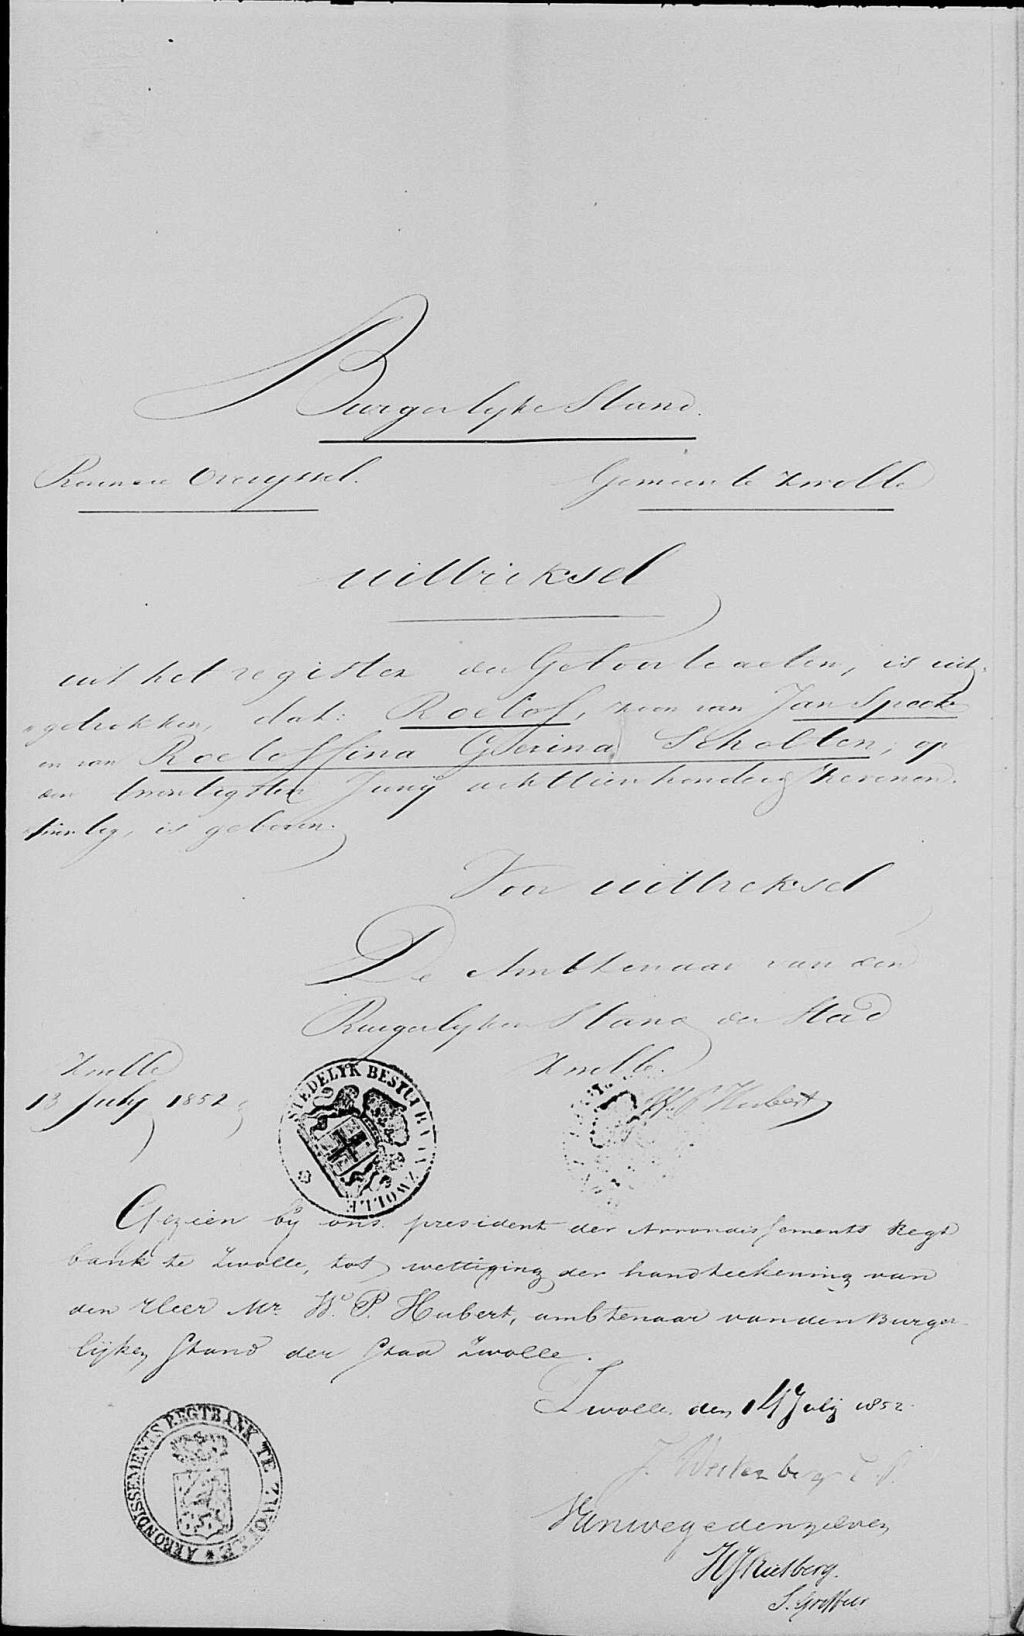 Burgerlyke Stand.
Provincie Overyssel. Gemeente Zwolle
uittreksel
uit het register der Geboorte acten, is uit-
getrokken, dat: Roelof, zoon van Jan Spook
en van Roeloffina Gserina Scholten, op
den twentigsten Juny achttienhonderd zevenen-
twintig, is geboren.
Voor uittreksel
De Ambtenaar van den
Burgerlyken Stand der Stad
Zwolle.
Zwolle
13 July 1852
W. P. Hubert
STEDELYK BESTUUR VAN ZWOLLE
Gezien by ons president der Arrondissements Regt
bank te Zwolle, tot wettiging der handteekening van
den Heer Mr. W. P. Hubert, ambtenaar van den Burger-
lijken Stand der Stad Zwolle.
Zwolle den 14 July 1852.
J. Westenberg
Vanwege denzelven
S. Griffier
ARRONDISSEMENTS REGTBANK TE ZWOLLE